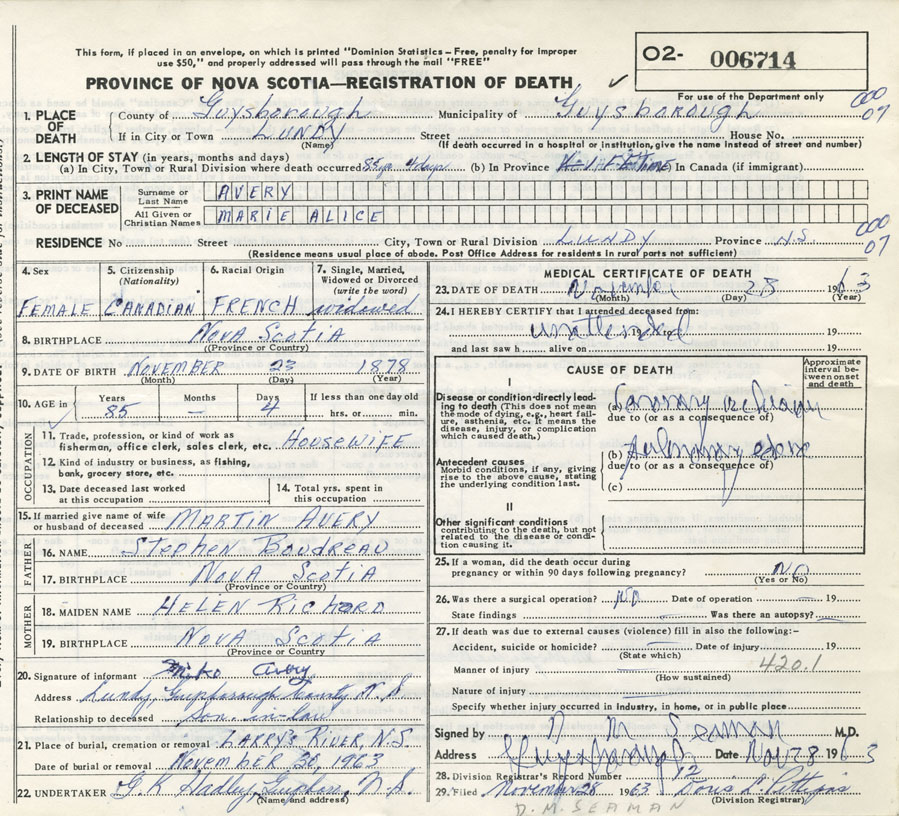 This form, if placed in an envelope, on which is printed "Dominion Statistics – Free, penalty for improper
use $50," and properly addressed will pass through the mail "FREE"
O2- 006714
For use of the Department only
PROVINCE OF NOVA SCOTIA—REGISTRATION OF DEATH ✓
1. PLACE OF DEATH
County of Guysborough Municipality of Guysborough
000
07
If in City or Town LUNDY Street House No.
(Name) (If death occurred in a hospital or institution, give name instead of street and number)
2. LENGTH OF STAY (in years, months and days)
(a) In City, Town or Rural Division where death occurred 85 yr 4 days (b) In Province In Canada (if immigrant)
3. PRINT NAME OF DECEASED
Surname or Last Name AVERY
All Given or Christian Names MARIE ALICE
RESIDENCE No Street City, Town or Rural Division LUNDY Province N.S.
000
07
(Residence means usual place of abode. Post Office Address for residents in rural parts not sufficient)
4. Sex
FEMALE
5. Citizenship
(Nationality)
CANADIAN
6. Racial Origin
FRENCH
7. Single, Married,
Widowed or Divorced
(write the word)
widowed
8. BIRTHPLACE NOVA SCOTIA
(Province or Country)
9. DATE OF BIRTH NOVEMBER 23 1878
(Month) (Day) (Year)
10. AGE in
Years Months Days If less than one day old
85 — 4 hrs. or min.
OCCUPATION
11. Trade, profession, or kind of work as
fisherman, office clerk, sales clerk, etc. HOUSEWIFE
12. Kind of industry or business, as fishing,
bank, grocery store, etc.
13. Date deceased last worked
at this occupation
14. Total yrs. spent in
this occupation
15. If married give name of wife
or husband of deceased MARTIN AVERY
FATHER
16. NAME Stephen Boudreau
17. BIRTHPLACE NOVA SCOTIA
(Province or Country)
MOTHER
18. MAIDEN NAME HELEN RICHARD
19. BIRTHPLACE NOVA SCOTIA
(Province or Country
20. Signature of informant Avery
Address Lundy, Guysborough County N.S
Relationship to deceased son-in-law
21. Place of burial, cremation or removal LARRY'S RIVER, N.S.
Date of burial or removal November 30, 1963
22. UNDERTAKER G.K Hadley, N.S.
(Name and address)
MEDICAL CERTIFICATE OF DEATH
23. DATE OF DEATH November 28 1963
(Month) (Day) (Year)
24. I HEREBY CERTIFY that I attended deceased from:
unattended 19
and last saw h alive on 19
CAUSE OF DEATH
Approximate interval between onset and death
I
Disease or condition directly leading to death (This does not mean the mode of dying, e.g., heart failure, asthenia, etc. It means the disease, injury, or complication which caused death.)
(a)
due to (or as a consequence of)
Antecedent causes
Morbid conditions, if any, giving rise to the above cause, stating the underlying condition last.
(b)
due to (or as a consequence of)
(c)
II
Other significant conditions
contributing to the death, but not related to the disease or condition causing it.
25. If a woman, did the death occur during
pregnancy or within 90 days following pregnancy? NO
(Yes or No)
26. Was there a surgical operation? NO Date of operation 19
State findings Was there an autopsy?
27. If death was due to external causes (violence) fill in also the following:–
Accident, suicide or homicide? Date of injury 19
(State which)
420.1
Manner of injury
(How sustained)
Nature of injury
Specify whether injury occurred in Industry, in home, or in public place
Signed by D M Seaman M.D.
Address Date Nov 28 1963
28. Division Registrar's Record Number 12
29. Filed November 28 1963 Doris
(Division Registrar)
D.M. SEAMAN